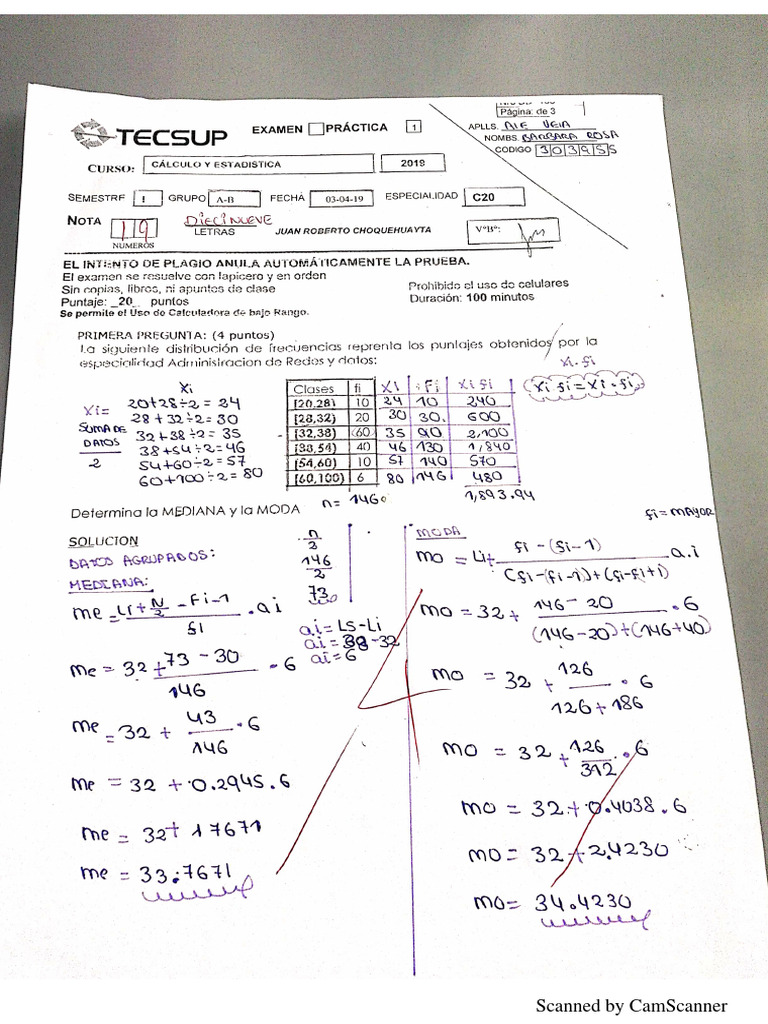 Página: de 3
TECSUP
EXAMEN PRÁCTICA 1
APLLS.
NOMBS. BARBARA ROSA
CODIGO 303955
CURSO: CÁLCULO Y ESTADISTICA 2019
SEMESTRE I GRUPO A-B FECHA 03-04-19 ESPECIALIDAD C20
NOTA 19 DIECINUEVE
NUMEROS LETRAS JUAN ROBERTO CHOQUEHUAYTA VºBº:
EL INTENTO DE PLAGIO ANULA AUTOMÁTICAMENTE LA PRUEBA.
El examen se resuelve con lapicero y en orden
Sin copias, libros, ni apuntes de clase
Prohibido el uso de celulares
Puntaje: _20_ puntos
Duración: 100 minutos
Se permite el Uso de Calculadora de bajo Rango.
PRIMERA PREGUNTA: (4 puntos)
La siguiente distribución de frecuencias reprenta los puntajes obtenidos por la
especialidad Administracion de Redes y datos:
xi.fi
xi fi = xi.fi
Xi
Xi = SUMA DE DATOS / 2
20+28÷2 = 24
28+32÷2 = 30
32+38÷2 = 35
38+54÷2 = 46
54+60÷2 = 57
60+100÷2 = 80
Clases fi XI Fi Xi fi
[20,28) 10 24 10 240
[28,32) 20 30 30. 600
[32,38) 60 35 90 2,100
[38,54) 40 46 130 1,840
[54,60) 10 57 140 570
[60,100) 6 80 146 480
n= 146
1,893.94
Determina la MEDIANA y la MODA
fi = MAYOR
SOLUCION
DATOS AGRUPADOS:
MEDIANA:
n/2
146/2
73
me = Li + N/2 - Fi-1 / fi . ai
ai = Ls-Li
ai = 38-32
ai = 6
me = 32 + 73-30 / 146 . 6
me = 32 + 43/146 . 6
me = 32 + 0.2945.6
me = 32 + 17671
me = 33.7671
MODA
mo = Li + fi-(fi-1) / (fi-(fi-1)+(fi-fi+1) a.i
mo = 32 + 146-20 / (146-20)+(146+40) . 6
mo = 32 + 126 / 126+186 . 6
mo = 32 + 126/312 . 6
mo = 32 + 0.4038.6
mo = 32 + 2.4230
mo = 34.4230
4
Scanned by CamScanner